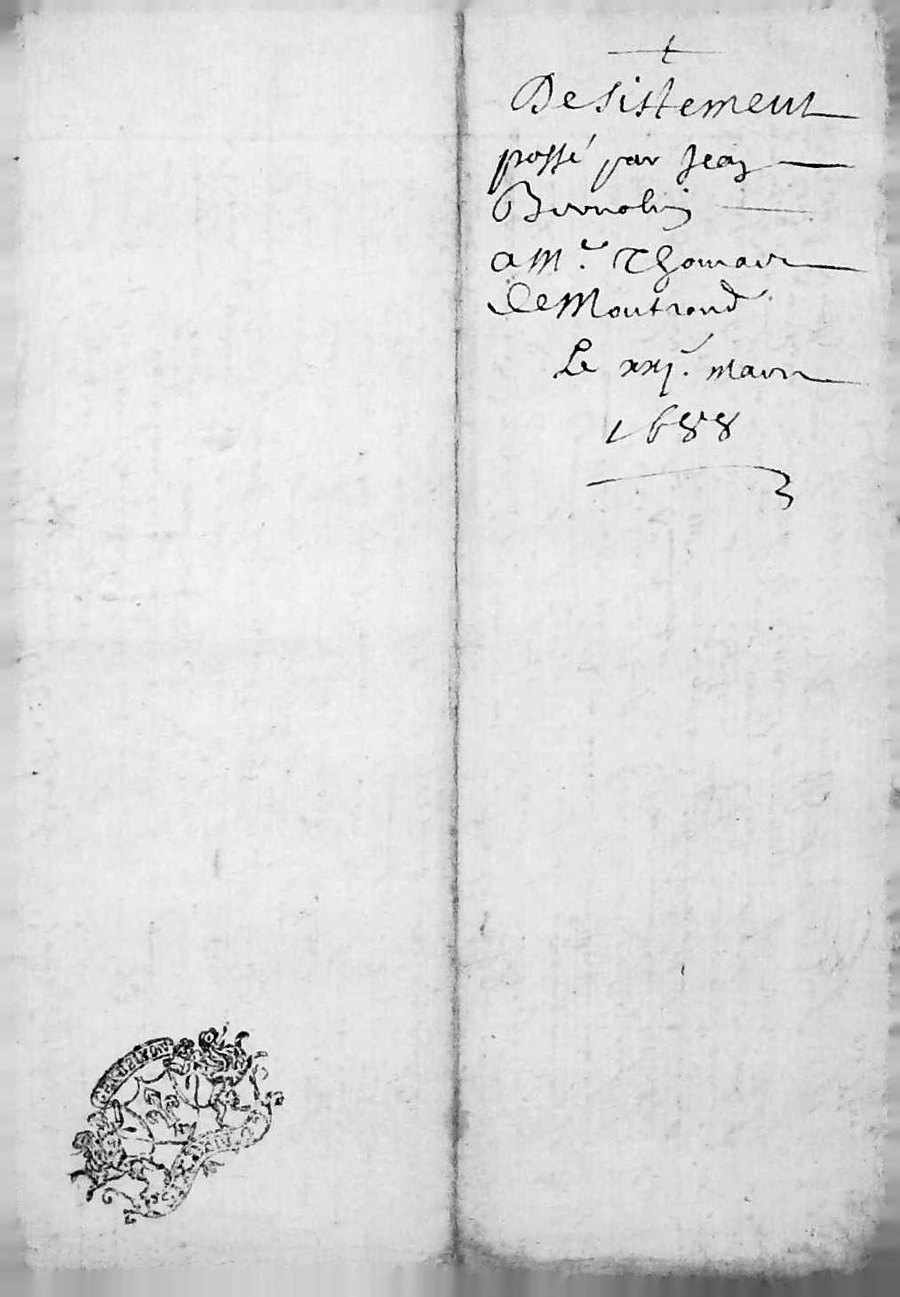 Desistement
passé par Jean
a Mr. Thomas
de Montrond
Le xxj. mars
1688